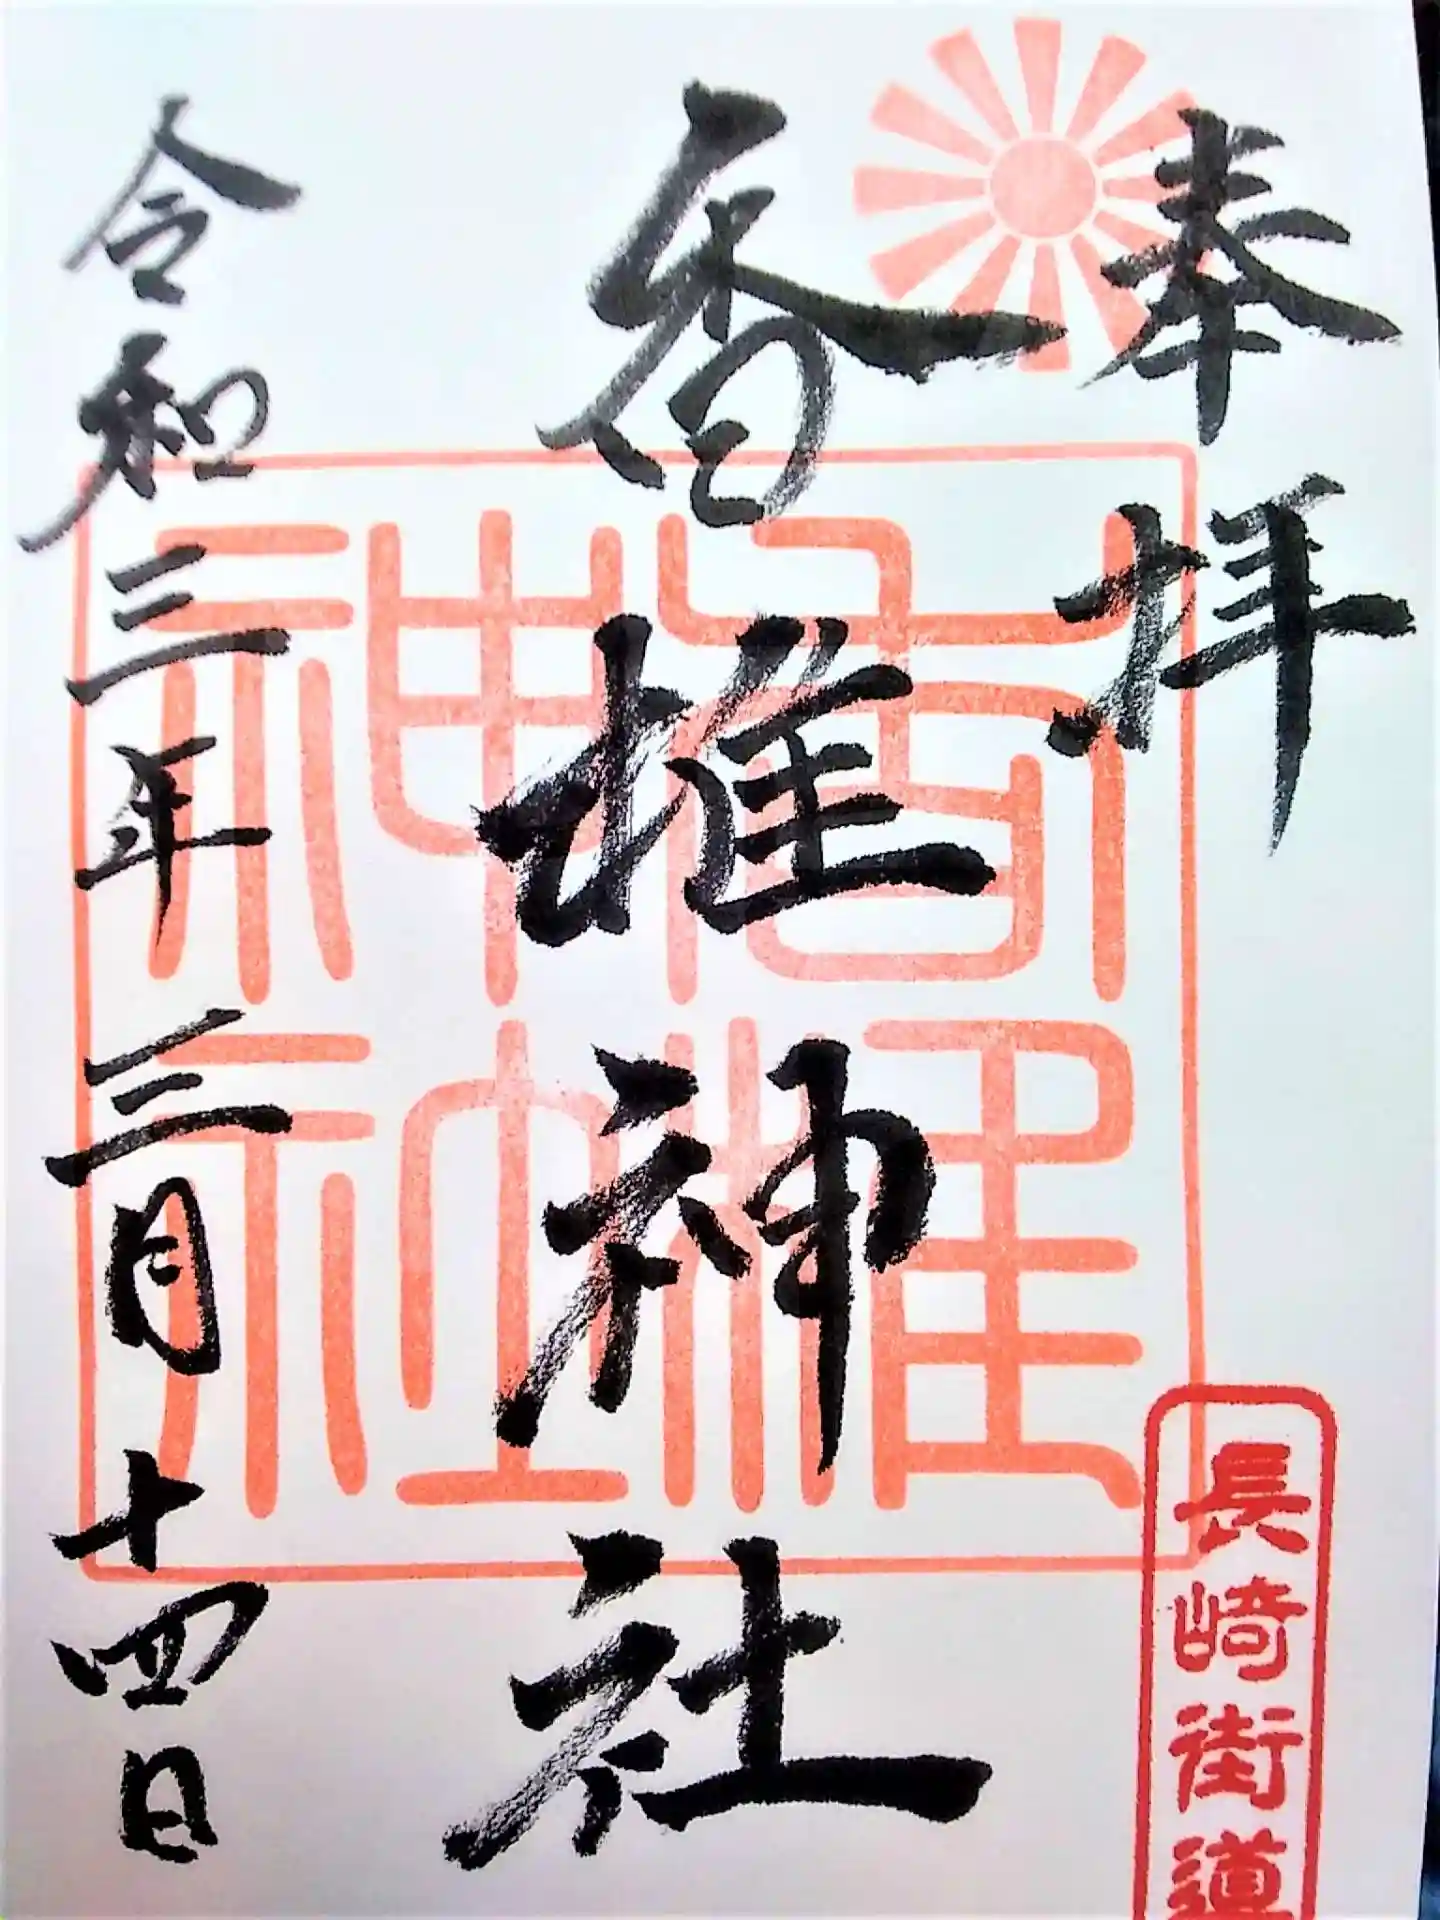 奉拝
香椎神社
令和三年三月十四日
香椎
神社
長崎街道